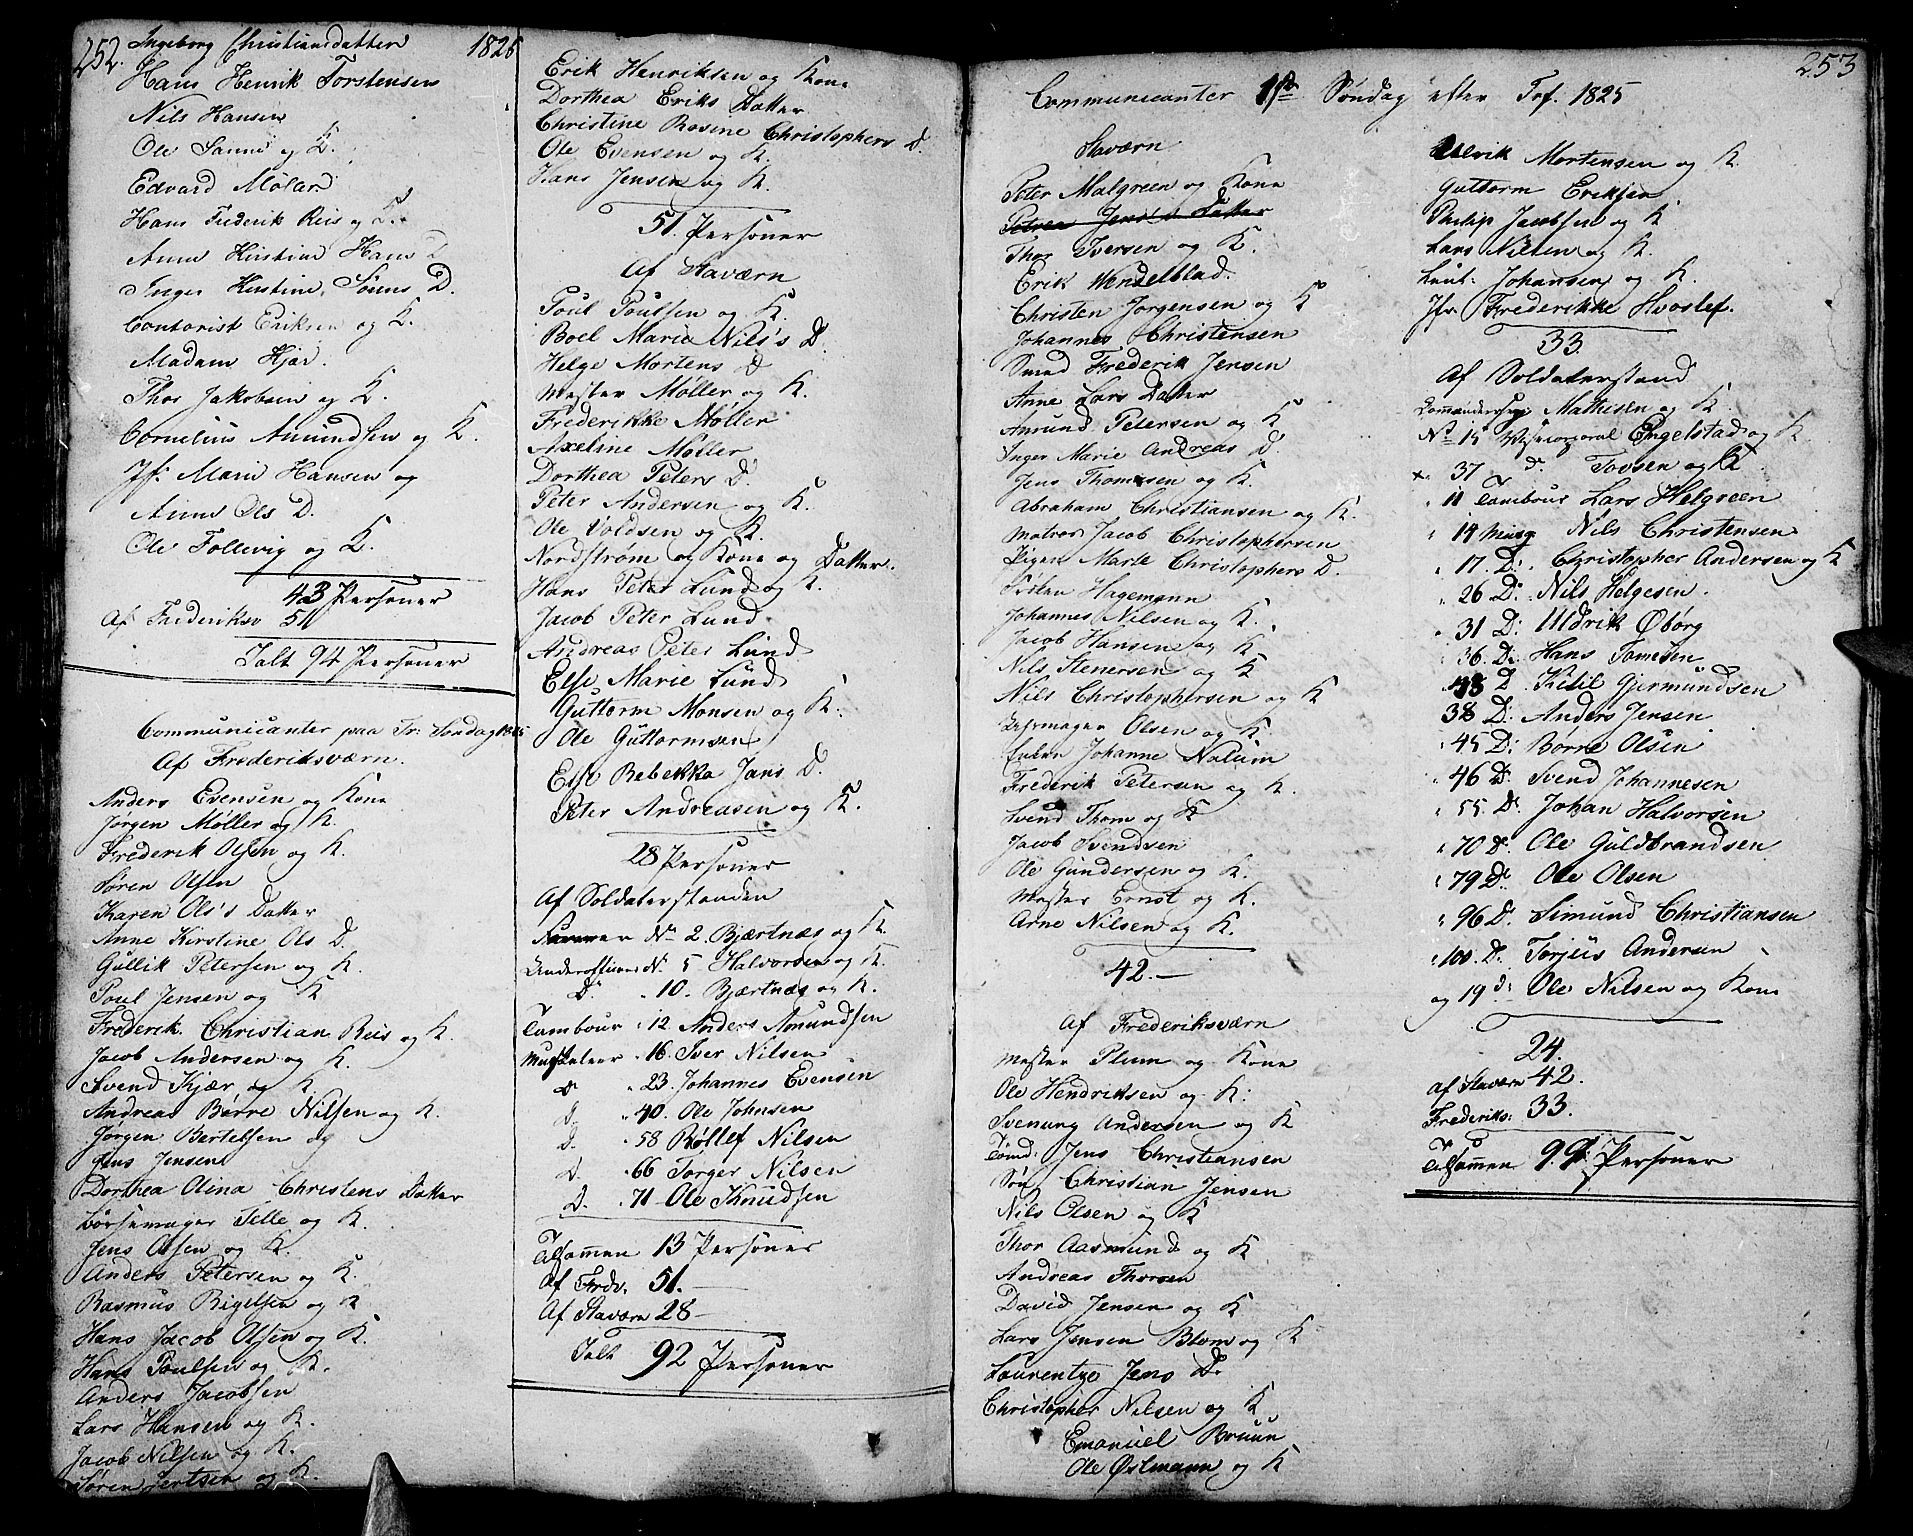 252.
Ingeborg Christiansdatter 1825
Hans Henrik Torstensen
Nils Hansen
Ole Sanne og K.
Edvard Møller
Hans Frederik Reis og K.
Anne Kirstine Hans D
Inger Kirstine Sørens D.
Contorist Eriksen og K.
Madam Kjær.
Thor Jakobsen og K.
Cornelius Amundsen og K.
Jfr. Marie Hansen og
Anne Ols D.
Ole Follevig og K.
43 Personer
Af Frederiksv 51
Ialt 94 Personer
Communicanter paa Tr: Søndag 1825
Af Frederiksværn.
Anders Evensen og Kone
Jørgen Møller og K.
Frederik Olsen og K.
Søren Olsen
Karen Ols's Datter
Anne Kirstine Ols D.
Gullik Petersen og K.
Poul Jensen og K
Frederik Christian Reis og K.
Jacob Andersen og K.
Svend Kjær og K
Andreas Børre Nilsen og K.
Jørgen Bertelsen og
Jens Jensen
Dorthea Olina Christens Datter
Børsemager Telle og K.
Jens Olsen og K.
Anders Petersen og K.
Rasmus Bigelsen og K
Hans Jacob Olsen og K.
Hans Poulsen og K.
Anders Jacobsen
Lars Hansen og K.
Jacob Nilsen og K.
Søren Bertsen og K.
Erik Henriksen og Kone
Dorthea Eriks Datter
Christine Rosine Christophers D.
Ole Evensen og K.
Hans Jensen og K.
51 Personer
Af Staværn
Poul Poulsen og K.
Boel Marie Nils's D.
Helge Mortens D
Mester Møller og K.
Frederikke Møller
Axeline Møller
Dorthea Peters D.
Peter Andersen og K.
Ole Voldsen og K.
Nordstrøm og Kone og Datter.
Hans Peter Lund og K.
Jacob Peter Lund
Andreas Peter Lund
Else Marie Lund
Guttorm Monsen og K.
Ole Guttormsen
Else Rebekka Jans D.
Peter Andreasen og K.
28 Personer
Af Soldaterstanden
No 2. Bjærtnæs og K.
Underofficier No. 5 Halvorsen og K.
Do " 10. Bjærtnæs og K.
Tambour " 12 Anders Amundsen
Musketeer " 16. Iver Nilsen
D " 23. Johannes Evensen
D " 40. Ole Johnsen
D. " 58 Røllef Nilsen
D " 66 Torger Nilsen
D. " 71 Ole Knudsen
Tilsammen 13 Personer
Af Frdv. 51.
Af Staværn 28
Ialt 92 Personer
253
Communicanter 1ste Søndag efter Tref. 1825
Staværn
Peter Malgreen og Kone
Petrea Jens's Datter
Thor Iversen og K.
Erik Wendelblad.
Christen Jørgensen og K
Johannes Christensen
Smed Frederik Jensen
Anne Lars Datter
Amund Petersen og K
Inger Marie Andreas D.
Jens Thomesen og K.
Abraham Christiansen og K.
Matros Jacob Christophersen
Pigen Marte Christophers D.
Hagemann
Johannes Nilsen og K.
Jacob Hansen og K.
Nils Stenersen og K
Nils Christophersen og K
Olsen og K
Enken Johanne Nalum
Frederik Petersen og K.
Svend Thom og K
Jacob Svendsen
Ole Gundersen og K.
Mester Ernst og K.
Arne Nilsen og K.
42.
Af Frederiksværn
Mester Plum og Kone
Ole Hendriksen og K.
Svenung Andersen og K
Tømd: Jens Christiansen
Søn Christian Jensen
Nils Olsen og K
Thor Aasmund og K
Andreas Thorsen
David Jensen og K
Lars Jensen Blom og K
Laurentze Jens Dr
Christopher Nilsen og K
Emanuel Bruun
Ole Østmann og K
Ulrik Mortensen og K.
Guttorm Eriksen
Philip Jacobsen og K
Lars Nilsen og K.
Leut: Johansen og K.
Jfr. Frederikke Hvoslef.
33.
Af Soldaterstand
Mathisen og K.
No 15 Engelstad og K.
37 do Tovsen og K.
" 11 Tambour Lars Helgreen
" 14 Musq Nils Christensen
" 17. D: Christopher Andersen og K
" 26 D: Nils Helgesen.
" 31 D: Uldrik Øborg
" 36. D: Hans Tomesen
D. Ketil Gjermundsen
38 D: Anders Jensen
" 45 D: Børre Olsen
" 46 D: Svend Johannesen
" 55 D: Johan Halvorsen
" 70 D. Ole Guldbrandsen
" 79 D. Ole Olsen
" 96 D. Simund Christiansen
" 100. D. Torjus Andersen
og 19 d: Ole Nilsen og Kone
24.
Af Staværn 42.
Frederiks: 33.
Tilsammen 99 Personer